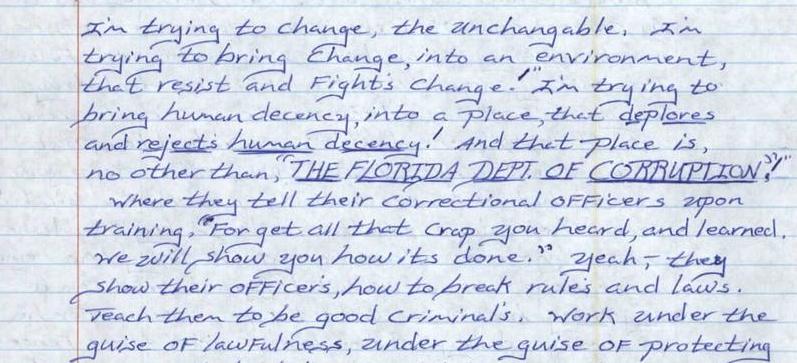 I'm trying to change, the unchangable. I'm
trying to bring Change, into an environment,
that resist and Fight's Change!" I'm trying to
bring human decency, into a place, that deplores
and rejects human decency! And that place is,
no other than, "THE FLORIDA DEPT. OF CORRUPTION,"!"
where they tell their correctional OFFicers upon
training, "Forget all that crap you heard, and learned.
We will show you how its done." Yeah, they
show their OFFicer's, how to break rules and laws.
Teach them to be good Criminal's. Work under the
guise OF lawFulness, under the guise OF protecting